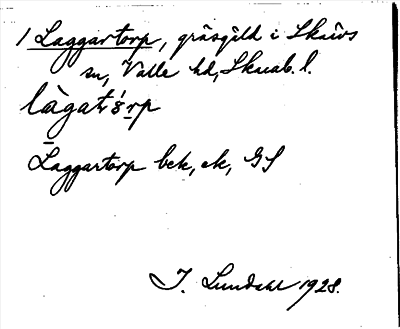 1 Laggartorp, gräsgäld i Skärvs
sn, Valle hd, Skarab. l.
làgató̤rp
Laggartorp bek, ek, GS
I. Lundahl 1928.